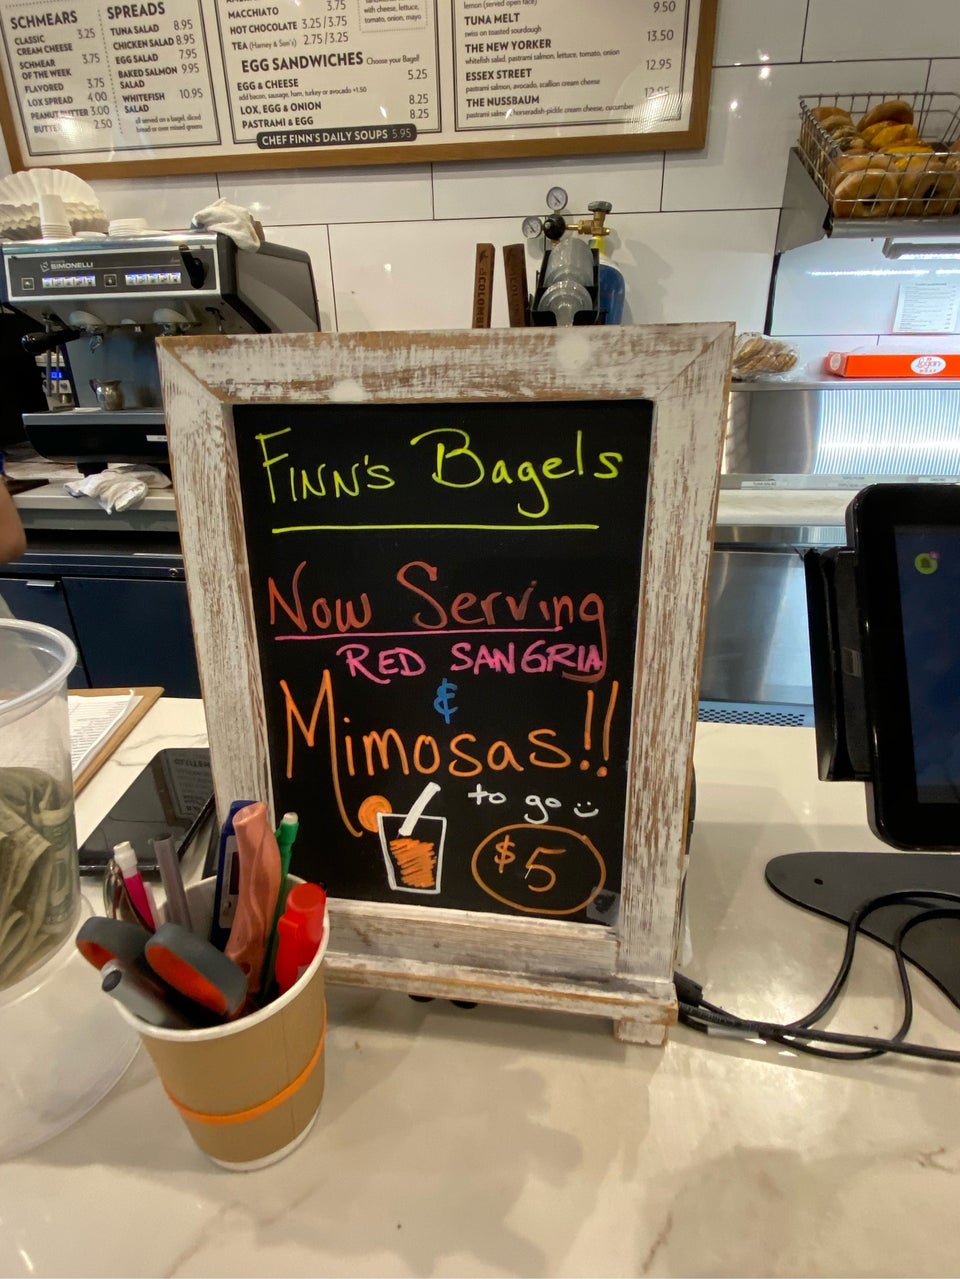 SCHMEARS
CLASSIC CREAM CHEESE 3.25
SCHMEAR OF THE WEEK 3.75
FLAVORED 3.75
LOX SPREAD 4.00
PEANUT BUTTER 3.00
BUTTER 2.50
SPREADS
TUNA SALAD 8.95
CHICKEN SALAD 8.95
EGG SALAD 7.95
BAKED SALMON SALAD 9.95
WHITEFISH SALAD 10.95
all served on a bagel, sliced
bread or over mixed greens
MACCHIATO 3.75
HOT CHOCOLATE 3.25 / 3.75
TEA (Harney & Son's) 2.75 / 3.25
with cheese, lettuce,
tomato, onion, mayo
EGG SANDWICHES Choose your Bagel!
EGG & CHEESE 5.25
add bacon, sausage, ham, turkey or avocado +1.50
LOX, EGG & ONION 8.25
PASTRAMI & EGG 8.25
CHEF FINN'S DAILY SOUPS 5.95
lemon (served open face)
TUNA MELT 9.50
swiss on toasted sourdough
THE NEW YORKER 13.50
whitefish salad, pastrami salmon, lettuce, tomato, onion
ESSEX STREET 12.95
pastrami salmon, avocado, scallion cream cheese
THE NUSSBAUM 12.95
pastrami salmon, horseradish-pickle cream cheese, cucumber
SIMONELLI
Logan
FINN'S Bagels
Now Serving
RED SANGRIA
&
Mimosas!!
to go
$5